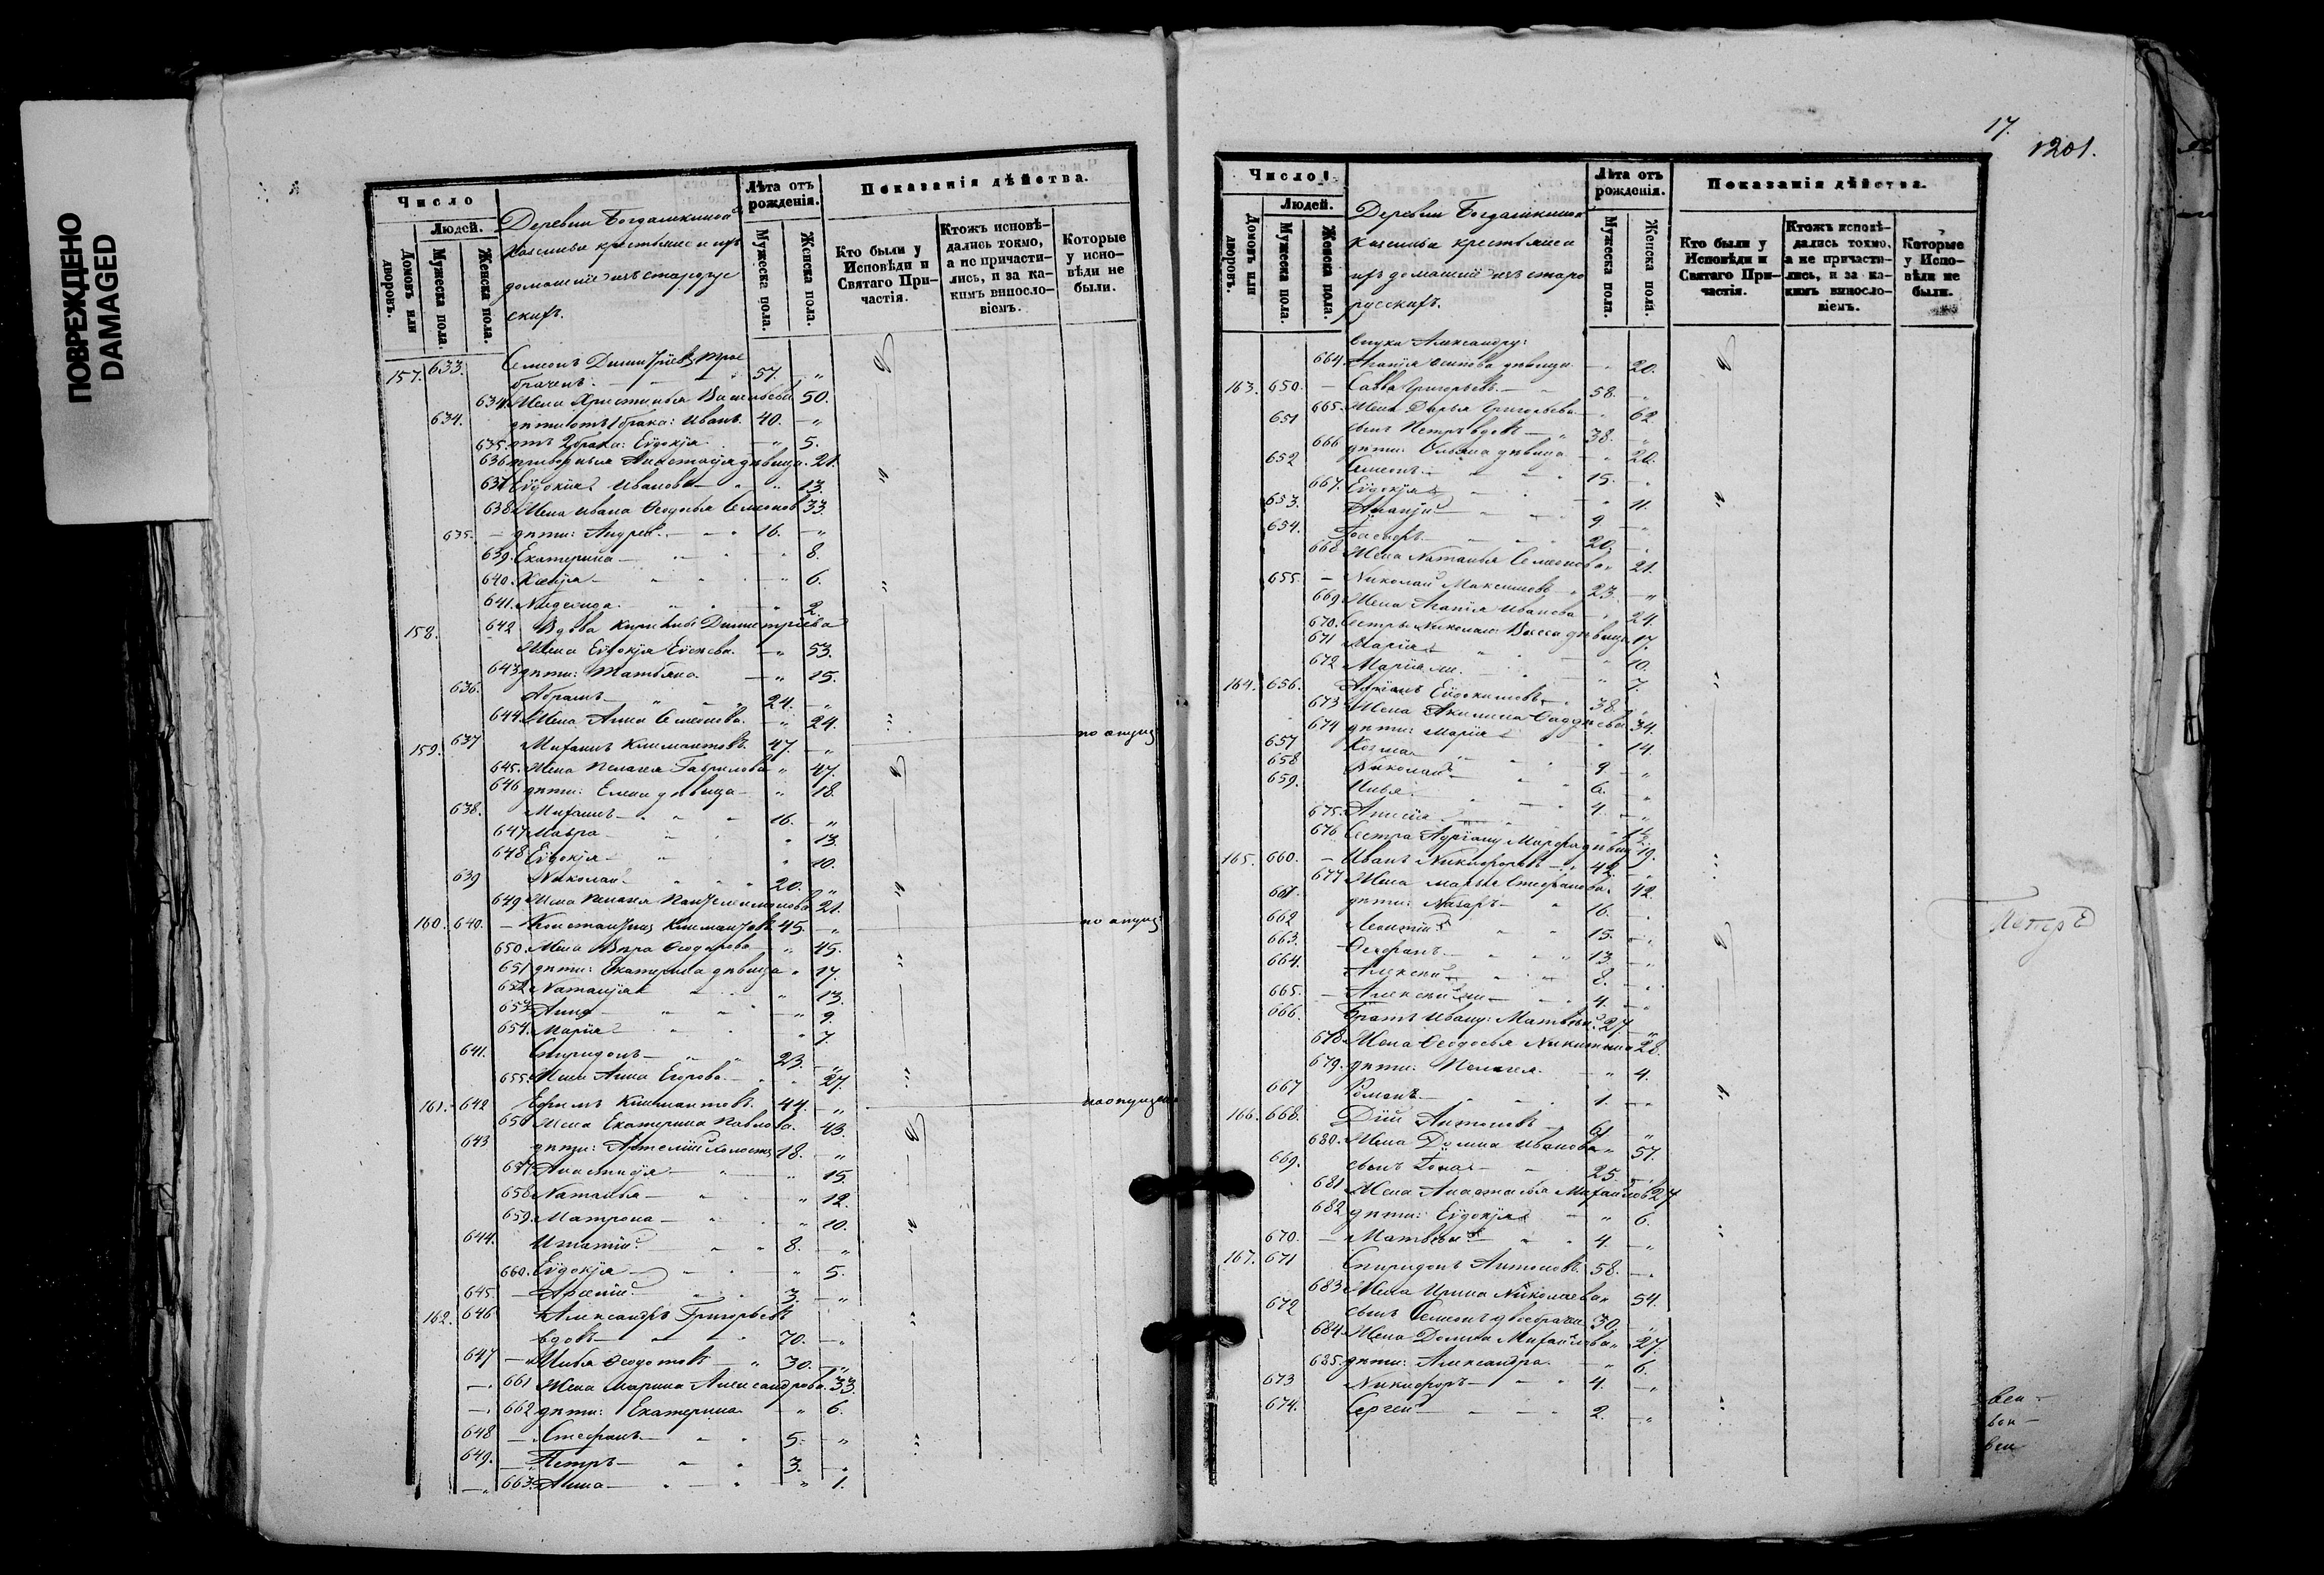 ПОВРЕЖДЕНО
DAMAGED
Число
Людей.
Домовъ или дворовъ.
Мужеска пола.
Женска пола.
Деревни Богдашкиной
казенные крестьяне и ихъ
домашніе изъ старорус
скихъ.
Лѣта отъ рожденія.
Мужеска пола.
Женска пола.
Показанія дѣйства.
Кто были у Исповѣди и Святаго Причастія.
Ктожъ исповѣдались токмо, а не причастились, и за какимъ винословіемъ.
Которые у исповѣди не были.
157. 633. Семенъ Димитріевъ трое
браченъ. 57 "
634. Жена Христинья Васильева 50.
634. дѣти отъ 1 брака: Иванъ. 40. "
635. отъ 2 брака: Еѵдокія " 5.
636 Анастасія дѣвица. 21.
637 Еѵдокія Иванова " 13.
638. Жена Ивана Ѳеодосья Семенов 33
635. дѣти: Андрей 16. "
639. Екатерина " 8.
640. Ксенія " 6.
641. " 2.
158. 642 Вдова Дмитріева
Жена Еѵдокія " 53.
643 дѣти: Татьяна " 15.
636. Абрамъ 24. "
644 Жена Анна Семенова. " 24.
159. 637 Михаилъ Климантовъ. 47. "
645. Жена Пелагея Гаврилова " 47.
646 дѣти: Елена дѣвица " 18.
638. Михаилъ 16. "
647 Мавра " 13.
648 Еѵдокія " 10.
639 Николай 20. "
649 Жена Пелагея Пантелеимонова 21.
160. 640. Константинъ Климантовъ 45. "
650. Жена Вѣра Ѳеодорова " 45.
651 дѣти: Екатерина дѣвица " 17.
652 Наталія " 13.
653 Анна " 9.
654. Марія " 7.
641. Спиридонъ 23. "
655. Жена Анна Егорова " 27.
161. 642 Ефимъ Климантовъ. 44. "
656 Жена Екатерина Павлова. 43.
643 дѣти: холостъ 18. "
657 Анастасія " 15.
658 Наталья " 12.
659. Матрона " 10.
644. Игнатій 8. "
660. Еѵдокія " 5.
645. Арсеній 3. "
162. 646 Александръ Григорьевъ
вдовъ 70. "
647 Илья Ѳедотовъ 30. "
661 Жена Марина Александрова. 33.
662 дѣти: Екатерина " 6.
648 Стефанъ 5. "
649. Петръ 3. "
663. Анна " 1.
17.
1201.
Число
Людей.
Домовъ или дворовъ.
Мужеска пола.
Женска пола.
Деревни Богдашкиной
казенные крестьяне и
ихъ домашніе изъ старо
русскихъ.
Лѣта отъ рожденія.
Мужеска пола.
Женска пола.
Показанія дѣйства.
Кто были у Исповѣди и Святаго Причастія.
Ктожъ исповѣдались токмо, а не причастились, и за какимъ винословіемъ.
Которые у Исповѣди не были.
внука Александру:
664. Агапія Осипова дѣвица 20.
163. 650. Савва Григорьевъ 58. "
665. Жена Дарья Григорьева " 62.
651 сынъ Петръ вдовъ 38. "
666 дѣти: Ульяна дѣвица " 20.
652 Семенъ 15. "
667. Еѵдокія " 11.
653. Ананій 9. "
654. 20. "
668 Жена Наталья Семенова " 21.
655. Николай Максимовъ 23. "
669 Жена Агапія Иванова " 24.
670. Сестры Николаю: Васса дѣвица 17.
671 Марія " 10.
672 Марія мл. " 7.
164. 656. Адріанъ Еѵдокимовъ 38. "
673 Жена Акилина Ѳаддеева 34.
674 дѣти: Марія " 14.
657 Козма 9 "
658 Николай 6. "
659. Илья 4. "
675. Анисія
676 Сестра Адріану Марфа дѣвиц 19.
165. 660. Иванъ Никифоровъ 42. "
677 Жена Марья Стефанова 42.
661. дѣти: Назаръ 16. "
662 Леонтій 15. "
663. Стефанъ 13. "
664. Алексѣй 8. "
665. Алексѣй мл. 4. "
666. Братъ Ивану: Матвей 27. "
678 Жена Ѳеодосья Никитина 28.
679. дѣти: Пелагея " 4.
667 Романъ 1. "
166. 668. Дій Антоновъ 61 "
680. Жена Домна Иванова " 57.
669. сынъ Іона 25. "
681 Жена Анастасья Михайлов 27
682 дѣти: Еѵдокія " 6.
670. Матвѣй 4. "
167. 671 Спиридонъ Антоновъ 58. "
683 Жена Ирина Николаева " 54.
672 сынъ Семенъ двоебрачн. 30. "
684 Жена Домна Михайлова " 27.
685. дѣти: Александра " 6.
673 Никифоръ 4. "
674. Сергей 2. "